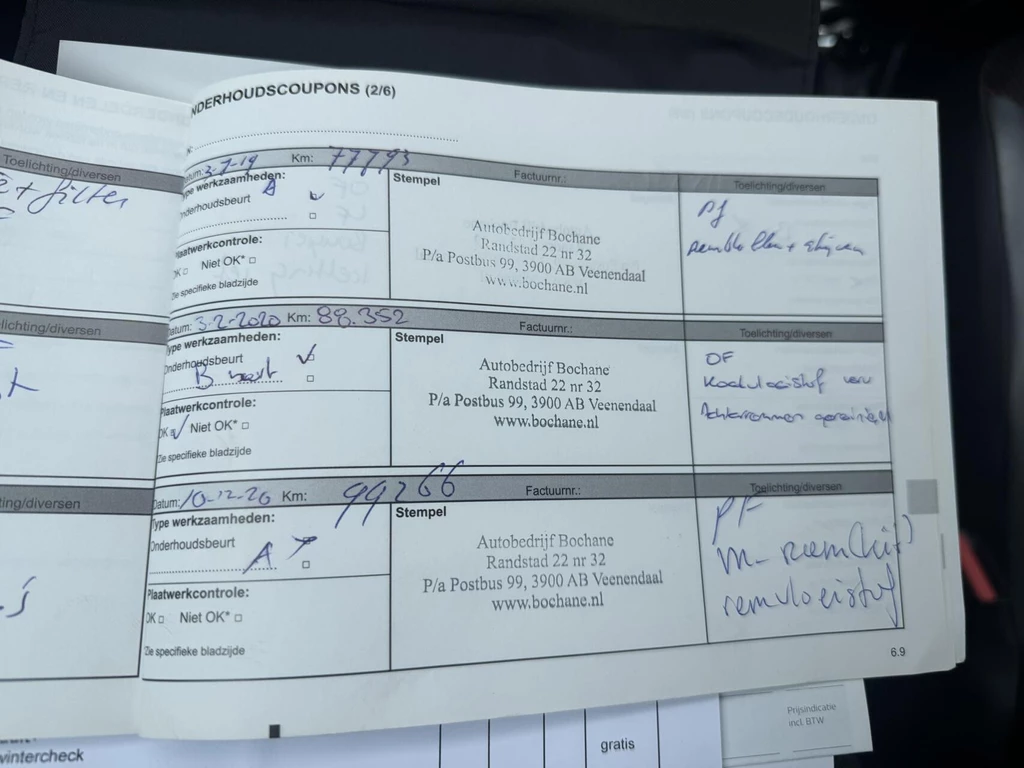 NDERHOUDSCOUPONS (2/6)
Toelichting/diversen
+ filter
atum: 3-7-19 Km: 77793
Type werkzaamheden: A
nderhoudsbeurt
Plaatwerkcontrole:
OK Niet OK*
Zie specifieke bladzijde
Stempel
Factuurnr.:
Autobedrijf Bochane
Randstad 22 nr 32
P/a Postbus 99, 3900 AB Veenendaal
www.bochane.nl
Toelichting/diversen
Pf
remblokken + schijven
elichting/diversen
atum: 3-2-2020 Km: 88.352
Type werkzaamheden:
Onderhoudsbeurt
B beurt
Plaatwerkcontrole:
OK Niet OK*
Zie specifieke bladzijde
Stempel
Factuurnr.:
Autobedrijf Bochane
Randstad 22 nr 32
P/a Postbus 99, 3900 AB Veenendaal
www.bochane.nl
Toelichting/diversen
OF
Koelvloeistof verv
Achterremmen gereinigd
ting/diversen
Datum: 10-12-20 Km: 99266
Type werkzaamheden:
Onderhoudsbeurt
A
Plaatwerkcontrole:
OK Niet OK*
Zie specifieke bladzijde
Stempel
Factuurnr.:
Autobedrijf Bochane
Randstad 22 nr 32
P/a Postbus 99, 3900 AB Veenendaal
www.bochane.nl
Toelichting/diversen
PF
m-riem(kit)
remvloeistof
6.9
Prijsindicatie
incl. BTW
wintercheck
gratis